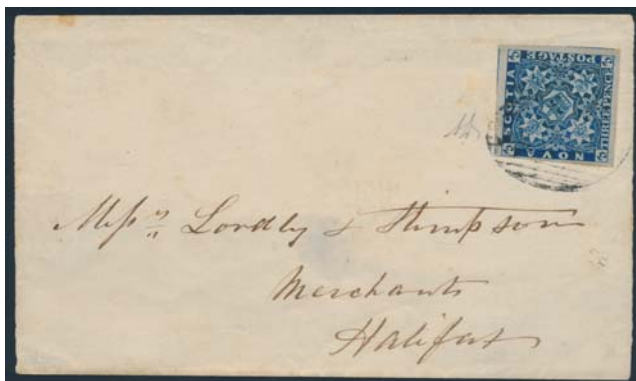 NOVA SCOTIA POSTAGE THREE PENCE
Messrs Lordly & Stimpson
Merchants
Halifax